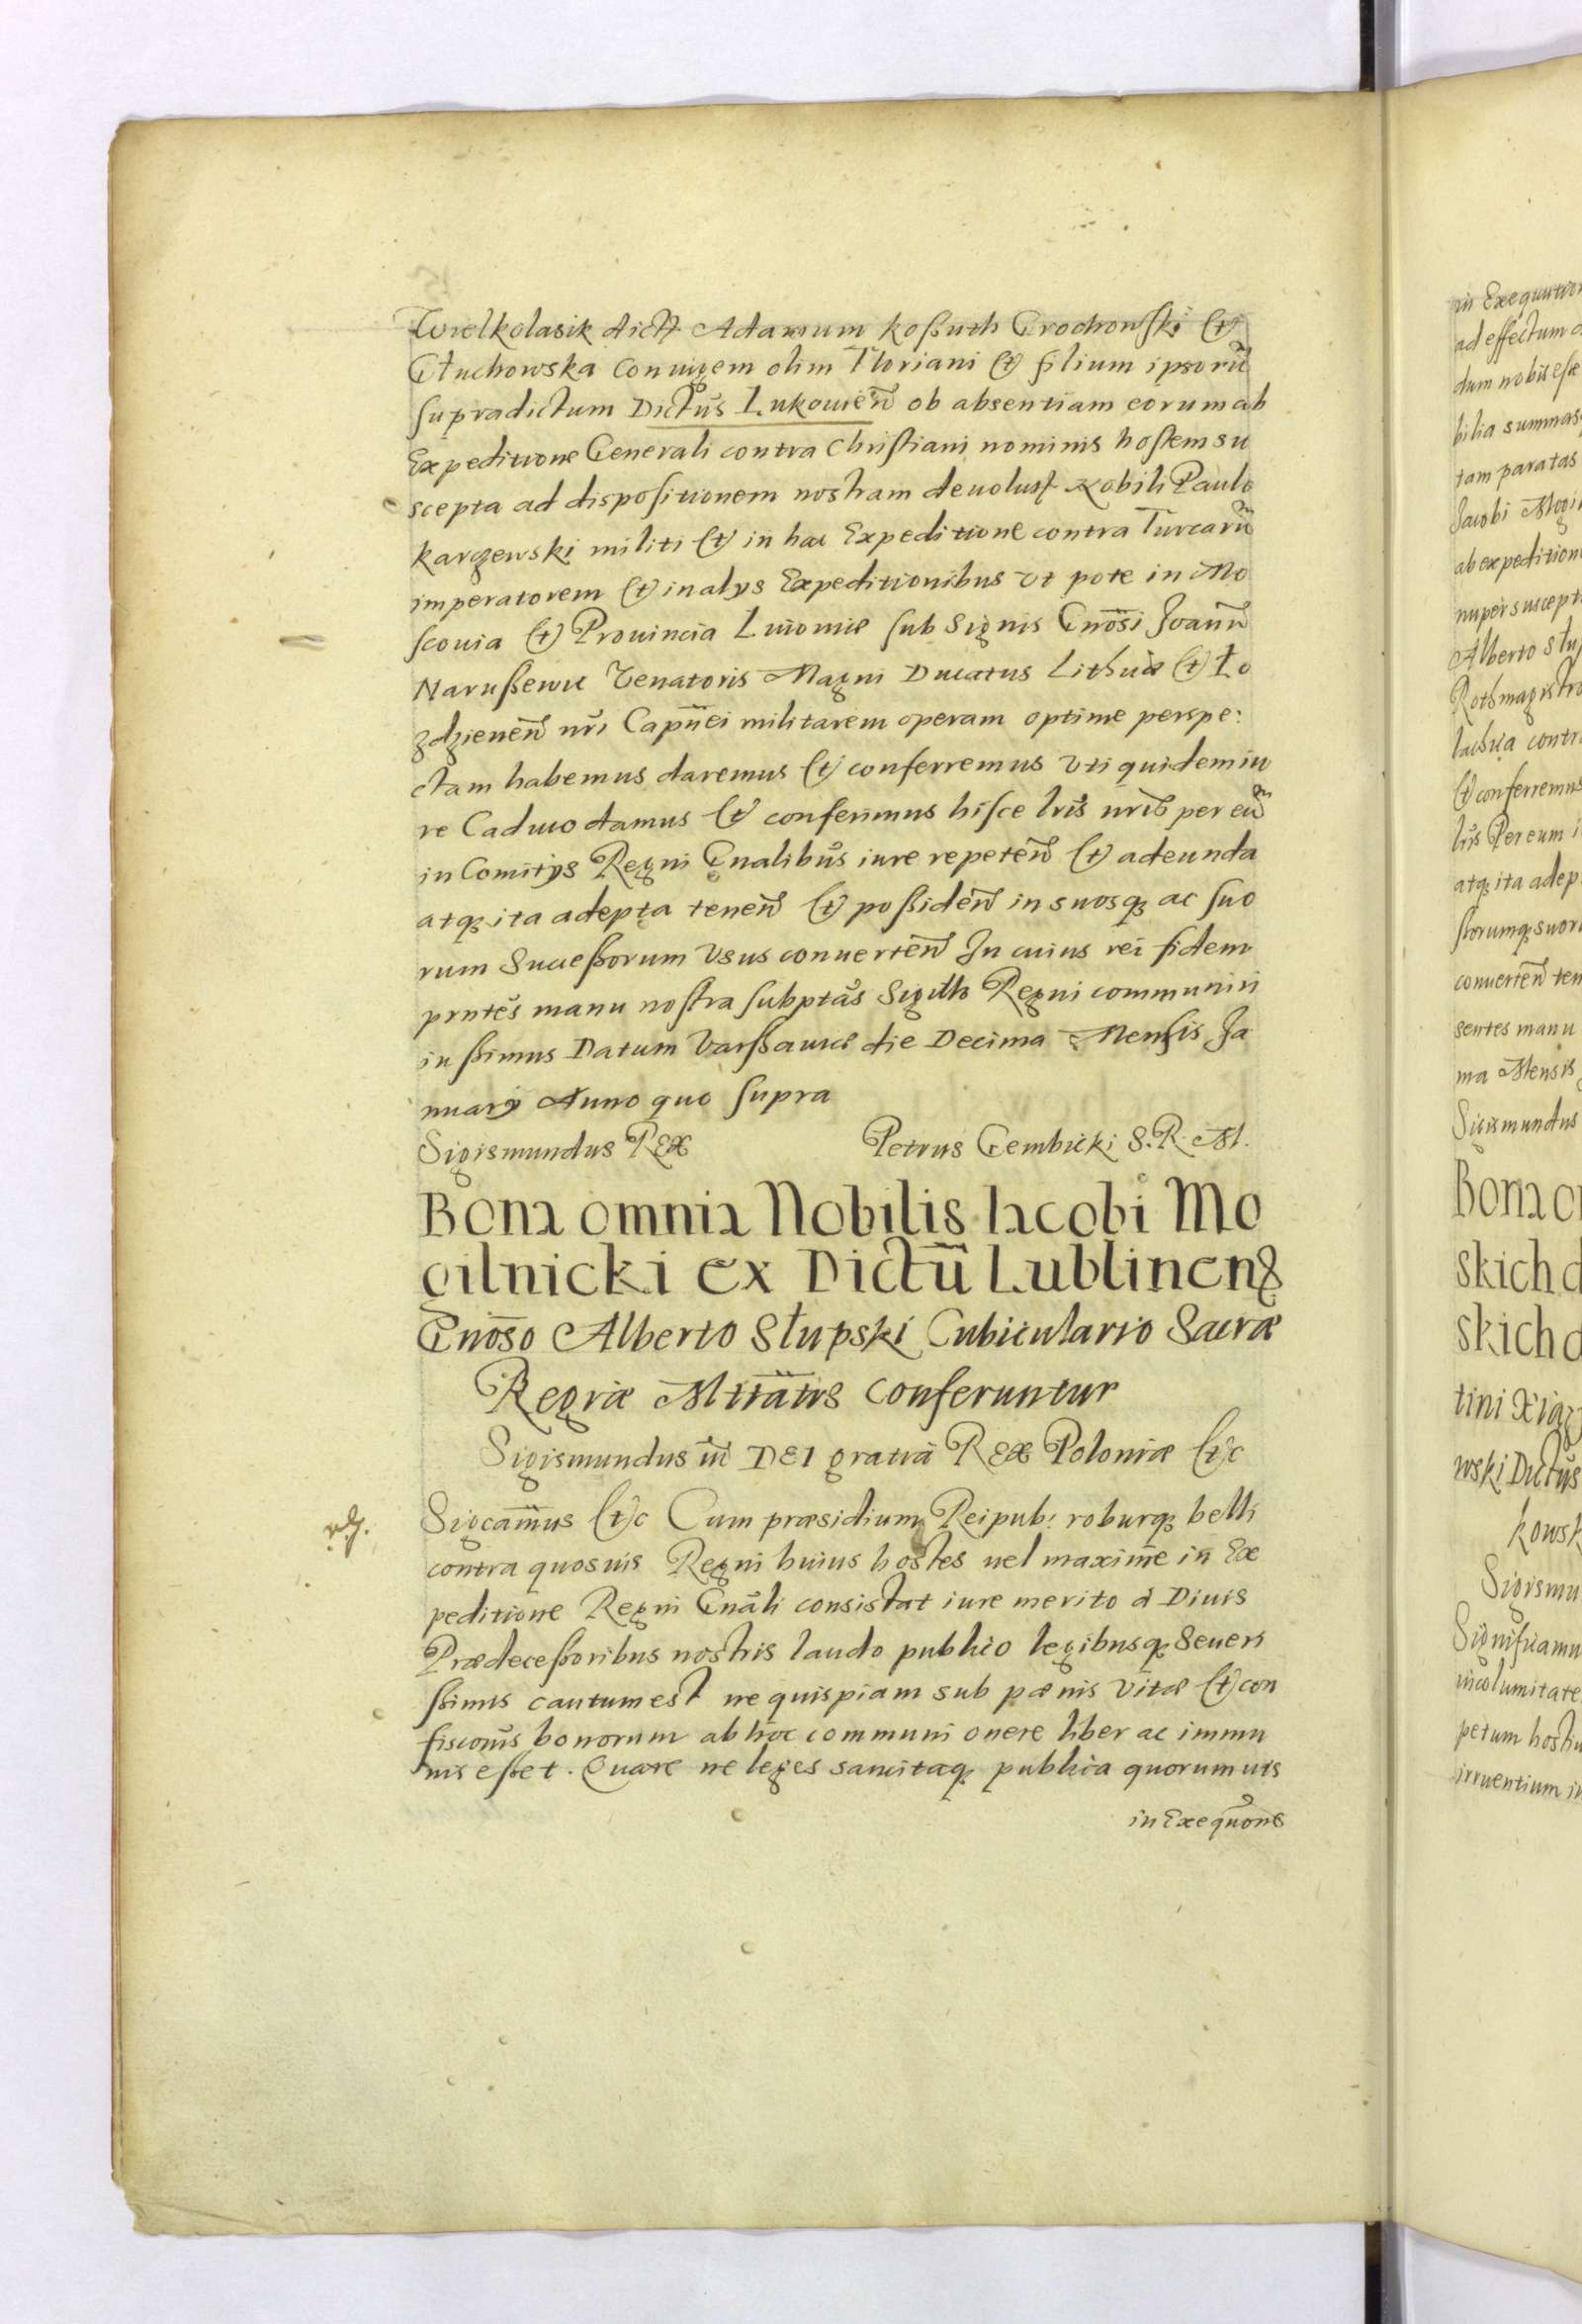 Wielkolasik dictt Adamum Koßuth Grochowski (et)
Głuchowska Coniugem olim Floriani (et) filium ipsorũ
supradictum Dictus Lukowieñ ob absentiam eorum ab
Expeditione Generali contra Christiani nominis hostem su
scepta ad dispositionem nostram deuolust Nobili Paulo
Karczewski militi (et) in hac Expeditione contra Turcarũ
imperatorem (et) in alys Expeditionibus vt pote in Mo
scouia (et) Prouincia Liuoniæ sub Signis Gnõsi Joann̄
Narußewic Venatoris Magni Ducatus Lithuæ (et) Ło
zdzieneñ nri Capnei militarem operam optime perspe:
ctam habemus daremus (et) conferremus vti quidem iu
re Caduco damus (et) conferimus hisce lris nris per eũ
in Comitys Regni Gnalibus iure repeteñ (et) adeunda
atq ita adepta teneñ (et) poßideñ in suosq ac suo
rum Succeßorum Vsus conuerteñ In cuius rei fidem
prntes manu nostra subptas Sigillo Regni communiri
iußimus Datum Varßauiæ die Decima Mensis Ja
nuary Anno quo supra
Sigismundus REX Petrus Gembicki S. R. M.
Bona omnia Nobilis Iacobi Mo
gilnicki ex Dictũ Lublinens
Gnõso Alberto Słupski Cubiculario Sacræ
Regiæ Mttatis conferuntur
Sigismundus iii DEI gratiã REX Poloniæ (et)c
Sigcamus (et)c Cum præsidium Reipub: roburq belli
contra quosuis Regni huius hostes uel maxime in Ex
peditione Regni Gnãli consistat iure merito à Diuis
Prædeceßoribus nostris laudo publico legibusq Seueri
ßimis cautum est ne quispiam sub pænis Vitæ (et) con
fisconis bonorum ab hoc communi onere liber ac immu
nis eßet. Quare ne leges sancitaq publica quorumuis
in Exequone
in Exequution
ad effectum
dum nobis esse
bilia summas
tam paratas
Jacobi Mogi
ab expedition
nuper suscept
Alberto Słu
Rothmagistro
contr
(et) conferremus
lris Per eum i
atq ita adep
ßorumq suor
conuerteñ ten
sentes manu
ma Mensis
Sigismundus
Bona o
skich d
skich d
tini Xiąz
wski Dictus
kowsk
Sigismu
Significamu
incolumitate
petum hostiu
irruentium in